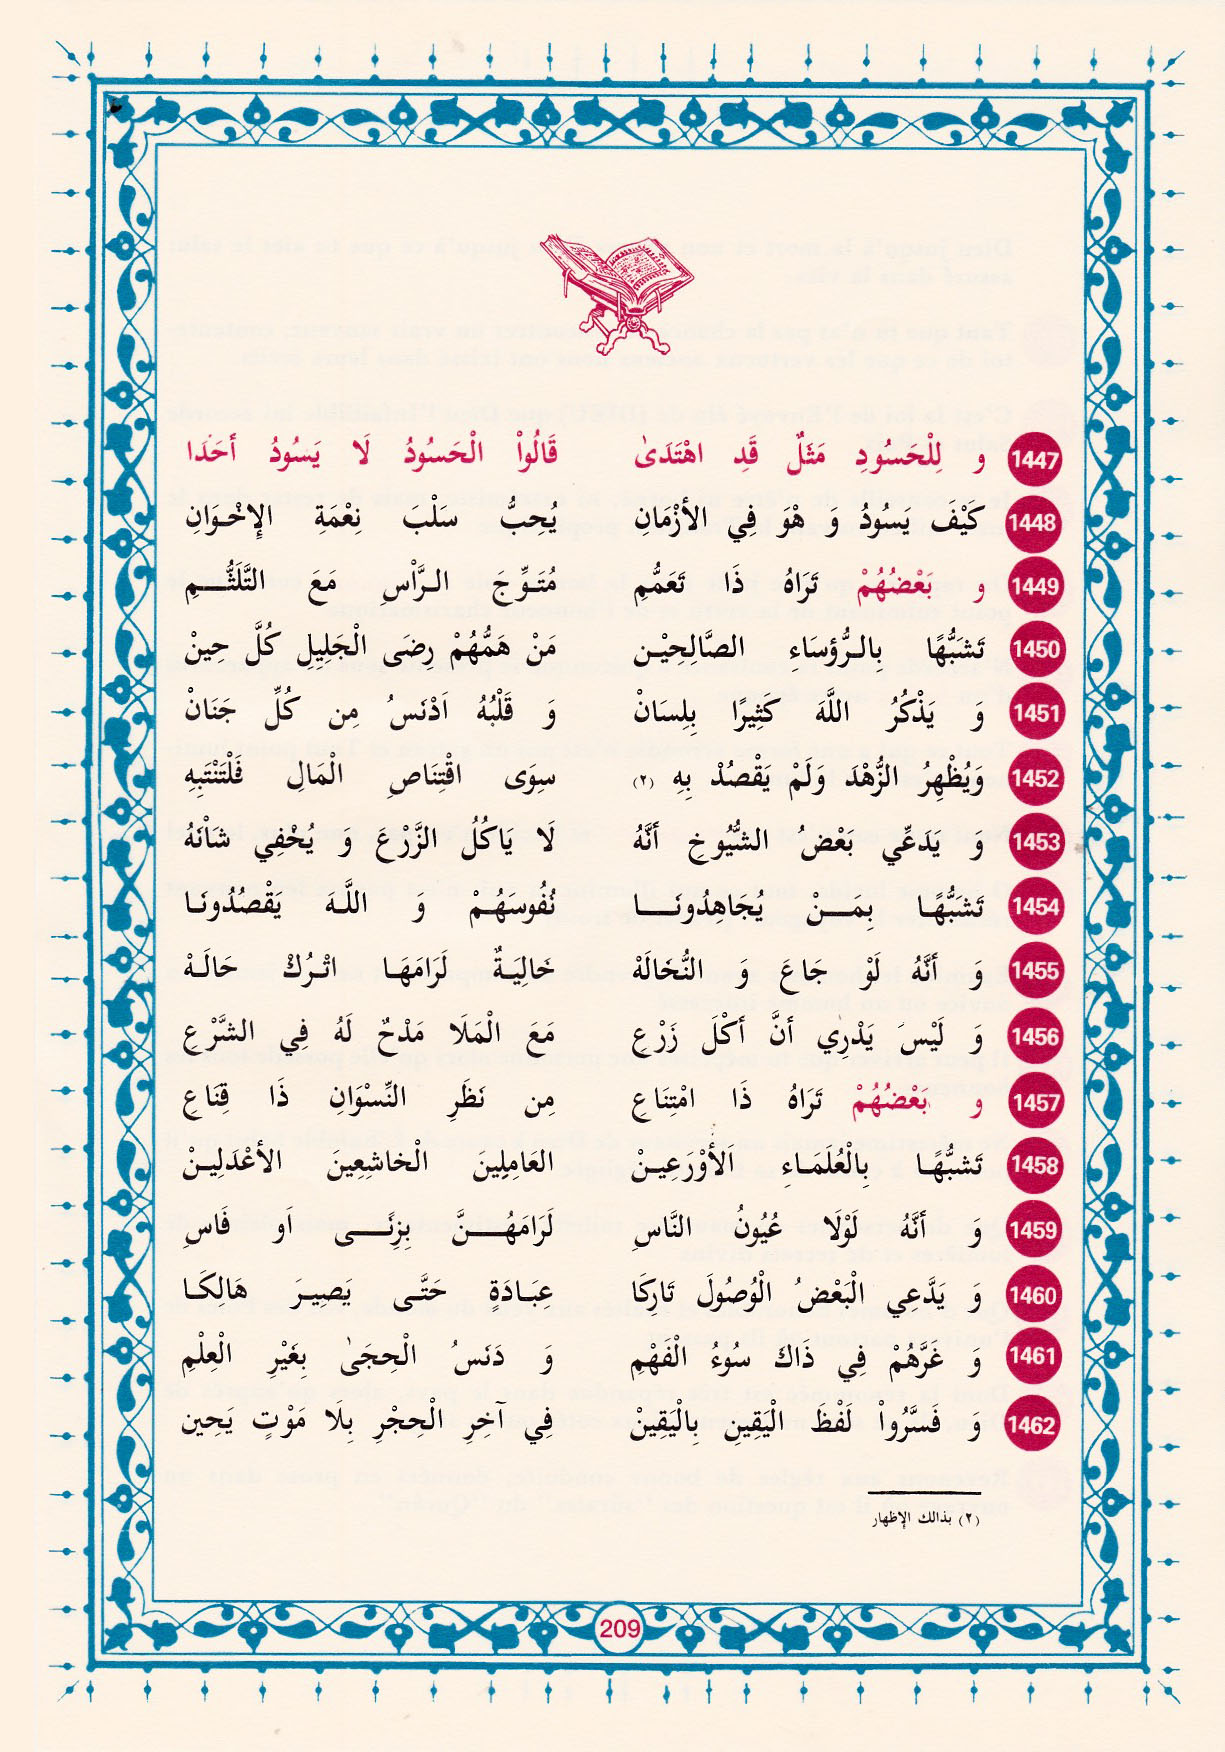 1447 و لِلْحَسُودِ مَثَلٌ قَدِ اهْتَدَىٰ قَالُواْ الْحَسُودُ لَا يَسُودُ أحَدَا
1448 كَيْفَ يَسُودُ وَ هْوَ فِي الأزْمَانِ يُحِبُّ سَلْبَ نِعْمَةِ الإخْوَانِ
1449 و بَعْضُهُمْ تَرَاهُ ذَا تَعَمُّمِ مُتَوِّجَ الرَّأْسِ مَعَ التَّلَثُّمِ
1450 تَشَبُّهًا بِالرُّؤسَاءِ الصَّالِحِيْن مَنْ هَمُّهُمْ رِضَى الْجَلِيلِ كُلَّ حِينْ
1451 وَ يَذْكُرُ اللَّهَ كَثِيرًا بِلِسَانْ وَ قَلْبُهُ اَدْنَسُ مِن كُلِّ جَنَانْ
1452 وَيُظْهِرُ الزُّهْدَ وَلَمْ يَقْصُدْ بِهِ (٢) سِوَى اقْتِنَاصِ الْمَالِ فَلْتَنْتَبِهِ
1453 وَ يَدَعِّي بَعْضُ الشُّيُوخِ أنَّهُ لَا يَاكُلُ الزَّرْعَ وَ يُخْفِي شَاْنَهُ
1454 تَشَبُّهًا بِمَنْ يُجَاهِدُونَا نُفُوسَهُمْ وَ اللَّهَ يَقْصُدُونَا
1455 وَ أنَّهُ لَوْ جَاعَ وَ النُّخَالَهْ خَالِيَةٌ لَرَامَهَا اتْرُكْ حَالَهْ
1456 وَ لَيْسَ يَدْرِي أنَّ أكْلَ زَرْعِ مَعَ الْمَلَا مَدْحٌ لَهُ فِي الشَّرْعِ
1457 و بَعْضُهُمْ تَرَاهُ ذَا امْتِنَاعِ مِن نَظَرِ النِّسْوَانِ ذَا قِنَاعِ
1458 تَشبُّهًا بِالْعُلَمَاءِ الأوْرَعِينْ العَامِلِينَ الْخاشِعِينَ الأعْدَلِينْ
1459 وَ أنَّهُ لَوْلَا عُيُونُ النَّاسِ لَرَامَهُنَّ بِزِنًى اَو فَاسِ
1460 وَ يَدَّعِي الْبَعْضُ الْوُصُولَ تَارِكَا عِبَادَةٍ حَتَّى يَصِيرَ هَالِكَا
1461 وَ غَرَّهُمْ فِي ذَاكَ سُوءُ الْفَهْمِ وَ دَنَسُ الْحِجَىٰ بِغَيْرِ الْعِلْمِ
1462 وَ فَسَّرُواْ لَفْظَ الْيَقِينِ بِالْيَقِيْنْ فِي آخِرِ الْحِجْرِ بِلَا مَوْتٍ يَحِين
(٢) بذالك الإظهار
209